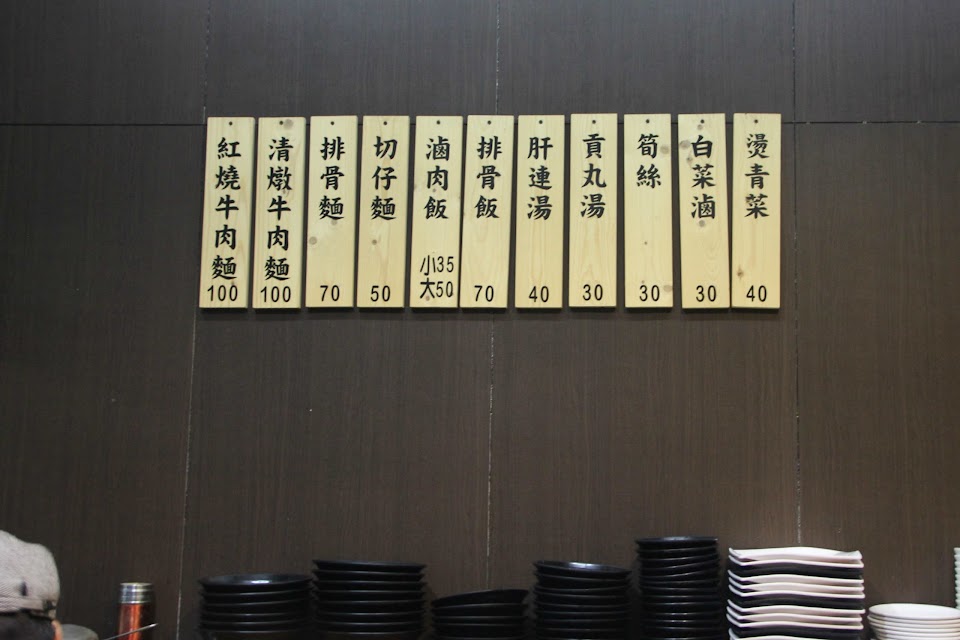 紅燒牛肉麵
100
清燉牛肉麵
100
排骨麵
70
切仔麵
50
滷肉飯
小35
大50
排骨飯
70
肝連湯
40
貢丸湯
30
筍絲
30
白菜滷
30
燙青菜
40